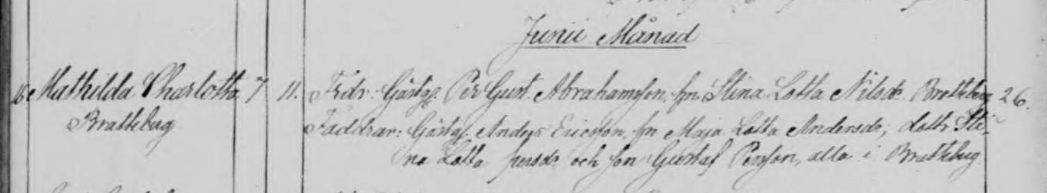 Junii Månad
16 Mathilda Charlotta 7 11. Frdr: Gästg. Per Gust. Abrahamsson, hn Stina Lotta Nilsdr. Brattebug 26.
Brattebug Faddrar: Gästg. Anders Ericsson, hn Maja Lotta Andersdr; dottr Sti-
na Lotta Persdr och son Gustaf Persson, alla i Brattebug